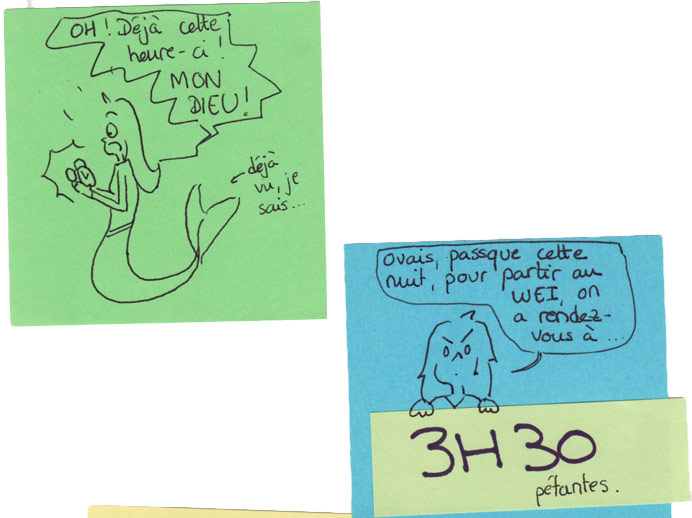 OH ! Déjà cette
heure-ci !
MON
DIEU !
← déjà
vu, je
sais...
Ouais, passque cette
nuit, pour partir au
WEI, on
a rendez-
vous à ...
3H30
pétantes.